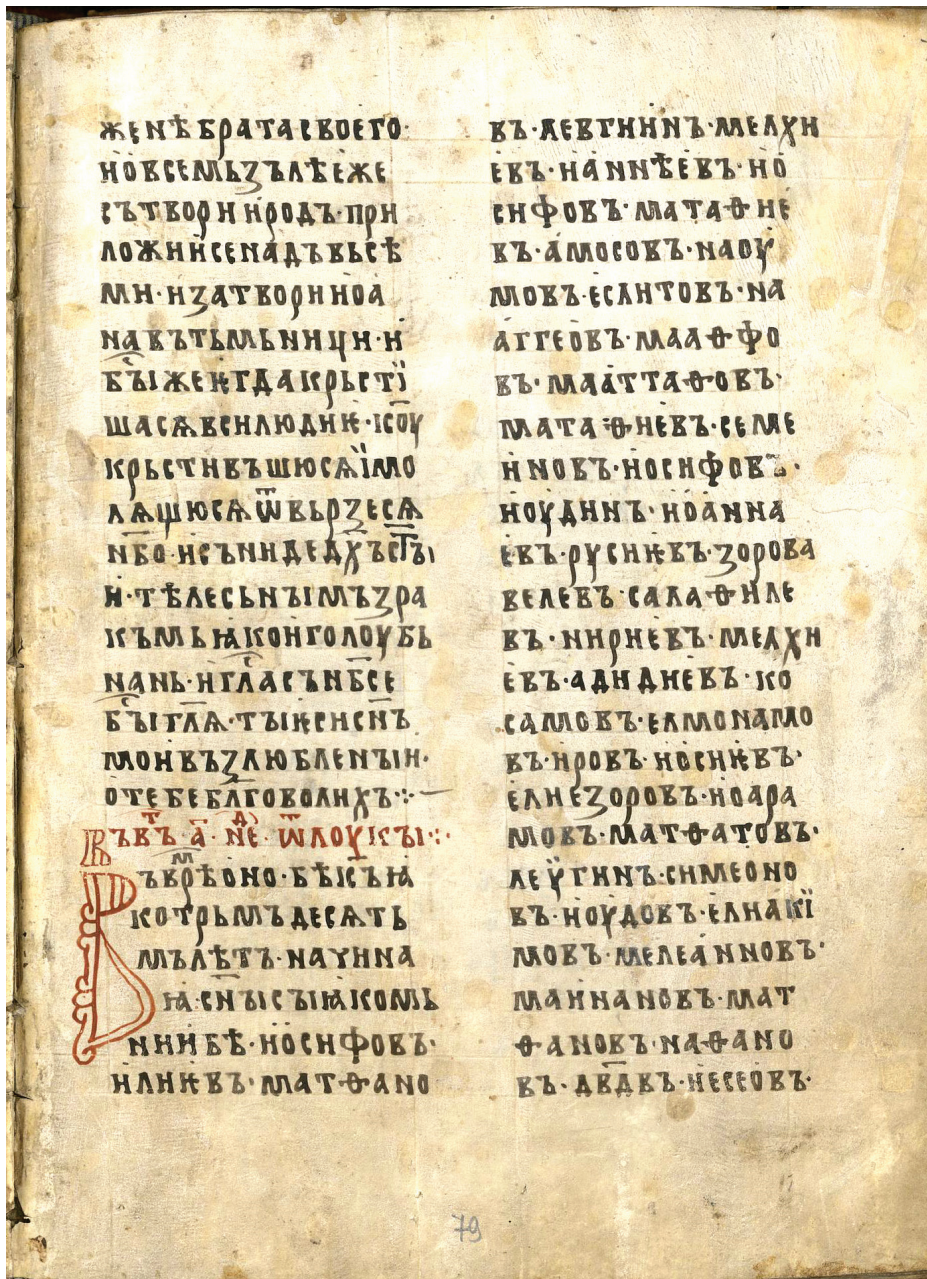 женѣ брата своего·
но всемь зълѣ еже
сътвори иродъ· при
ложи и се надъ вьсѣ
ми· и затвори иоа
на въ тьмьници· и
бы́ же ѥгда крьстї
шася вси людиѥ· ісоу
крьстивъшюсѧ їмо
лѧщюсѧ ѿвьрзесѧ
нб҃о· и съниде дх҃ъ ст҃ъı
и· тѣлесьнъıмъ зра
къмь ꙗко и голоубь
нань· и гласъ и нб҃се
бъı гл҃ѧ· тъı ѥси сн҃ъ
мои възлюбленъıи·
о тебе бл҃говолихъ ⁘
Въ вт҃ъ· а҃· не҃д· ѿ лоукъı ⁘
Въ врѣ҃м оно· бѣ іс҃ъ ꙗ
ко трьмъ десѧть
мъ лѣтъ· начина
ꙗ· сн҃ъ съı ꙗко мь
нии бѣ· иосифовъ·
илиѥвъ· матѳано
въ· левгиинъ· мелхи
евъ· наннѣевъ· ио
сифовъ· матаѳие
въ· амосовъ· наоу
мовъ· еслитовъ· на
аггеовъ· мааѳфо
въ· мааттаѳовъ·
матаѳиевъ· семе
иновъ· иосифовъ·
иоудинъ· иоанна
евъ· русиѥвъ· зорова
велевъ· салаѳиле
въ· нириевъ· мелхи
евъ· адидиевъ· ко
самовъ· елмонамо
въ· ировъ· иосиѥвъ·
елиезоровъ· иоара
мовъ· матѳатовъ·
леѵгинъ· симеоно
въ· иоудовъ· елиакї
мовъ· мелеанновъ·
маинановъ· мат
ѳановъ· наѳано
въ· дв҃двъ· иесеовъ·
79